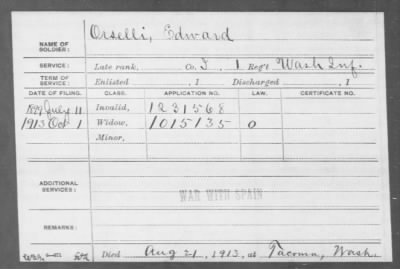 NAME OF SOLDIER: Orselli, Edward
SERVICE: Late rank, Co. I, 1 Reg't Wash Inf.
TERM OF SERVICE: Enlisted , 1 Discharged , 1
DATE OF FILING. CLASS. APPLICATION NO. LAW. CERTIFICATE NO.
1899 July 11 Invalid, 1231568
1913 Oct 1 Widow, 1015135 0
Minor,
ADDITIONAL SERVICES:
WAR WITH SPAIN
REMARKS:
Died Aug 21, 1913, at Tacoma, Wash.